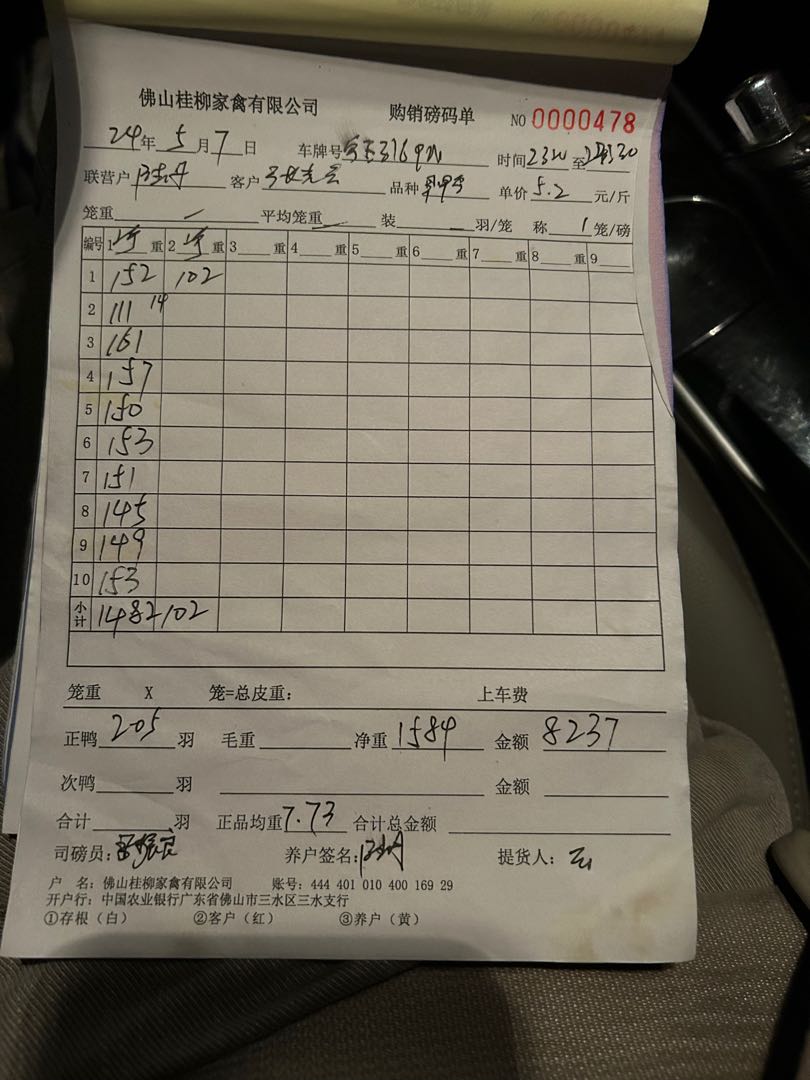 佛山桂柳家禽有限公司 购销磅码单 NO 0000478
24年 5月7日 车牌号 时间2320至
联营户 客户 品种 单价5.2元/斤
笼重 一 平均笼重 一 装 一 羽/笼 称 1 笼/磅
编号 1 重 2 重 3 重 4 重 5 重 6 重 7 重 8 重 9
1 152 102
2 111 14
3 161
4 157
5 150
6 153
7 151
8 145
9 149
10 153
小计 1482 102
笼重 X 笼=总皮重: 上车费
正鸭 205 羽 毛重 净重 1584 金额 8237
次鸭 羽 金额
合计 羽 正品均重 7.73 合计总金额
司磅员: 养户签名: 提货人:
户 名: 佛山桂柳家禽有限公司 账号: 444 401 010 400 169 29
开户行: 中国农业银行广东省佛山市三水区三水支行
①存根(白) ②客户(红) ③养户(黄)